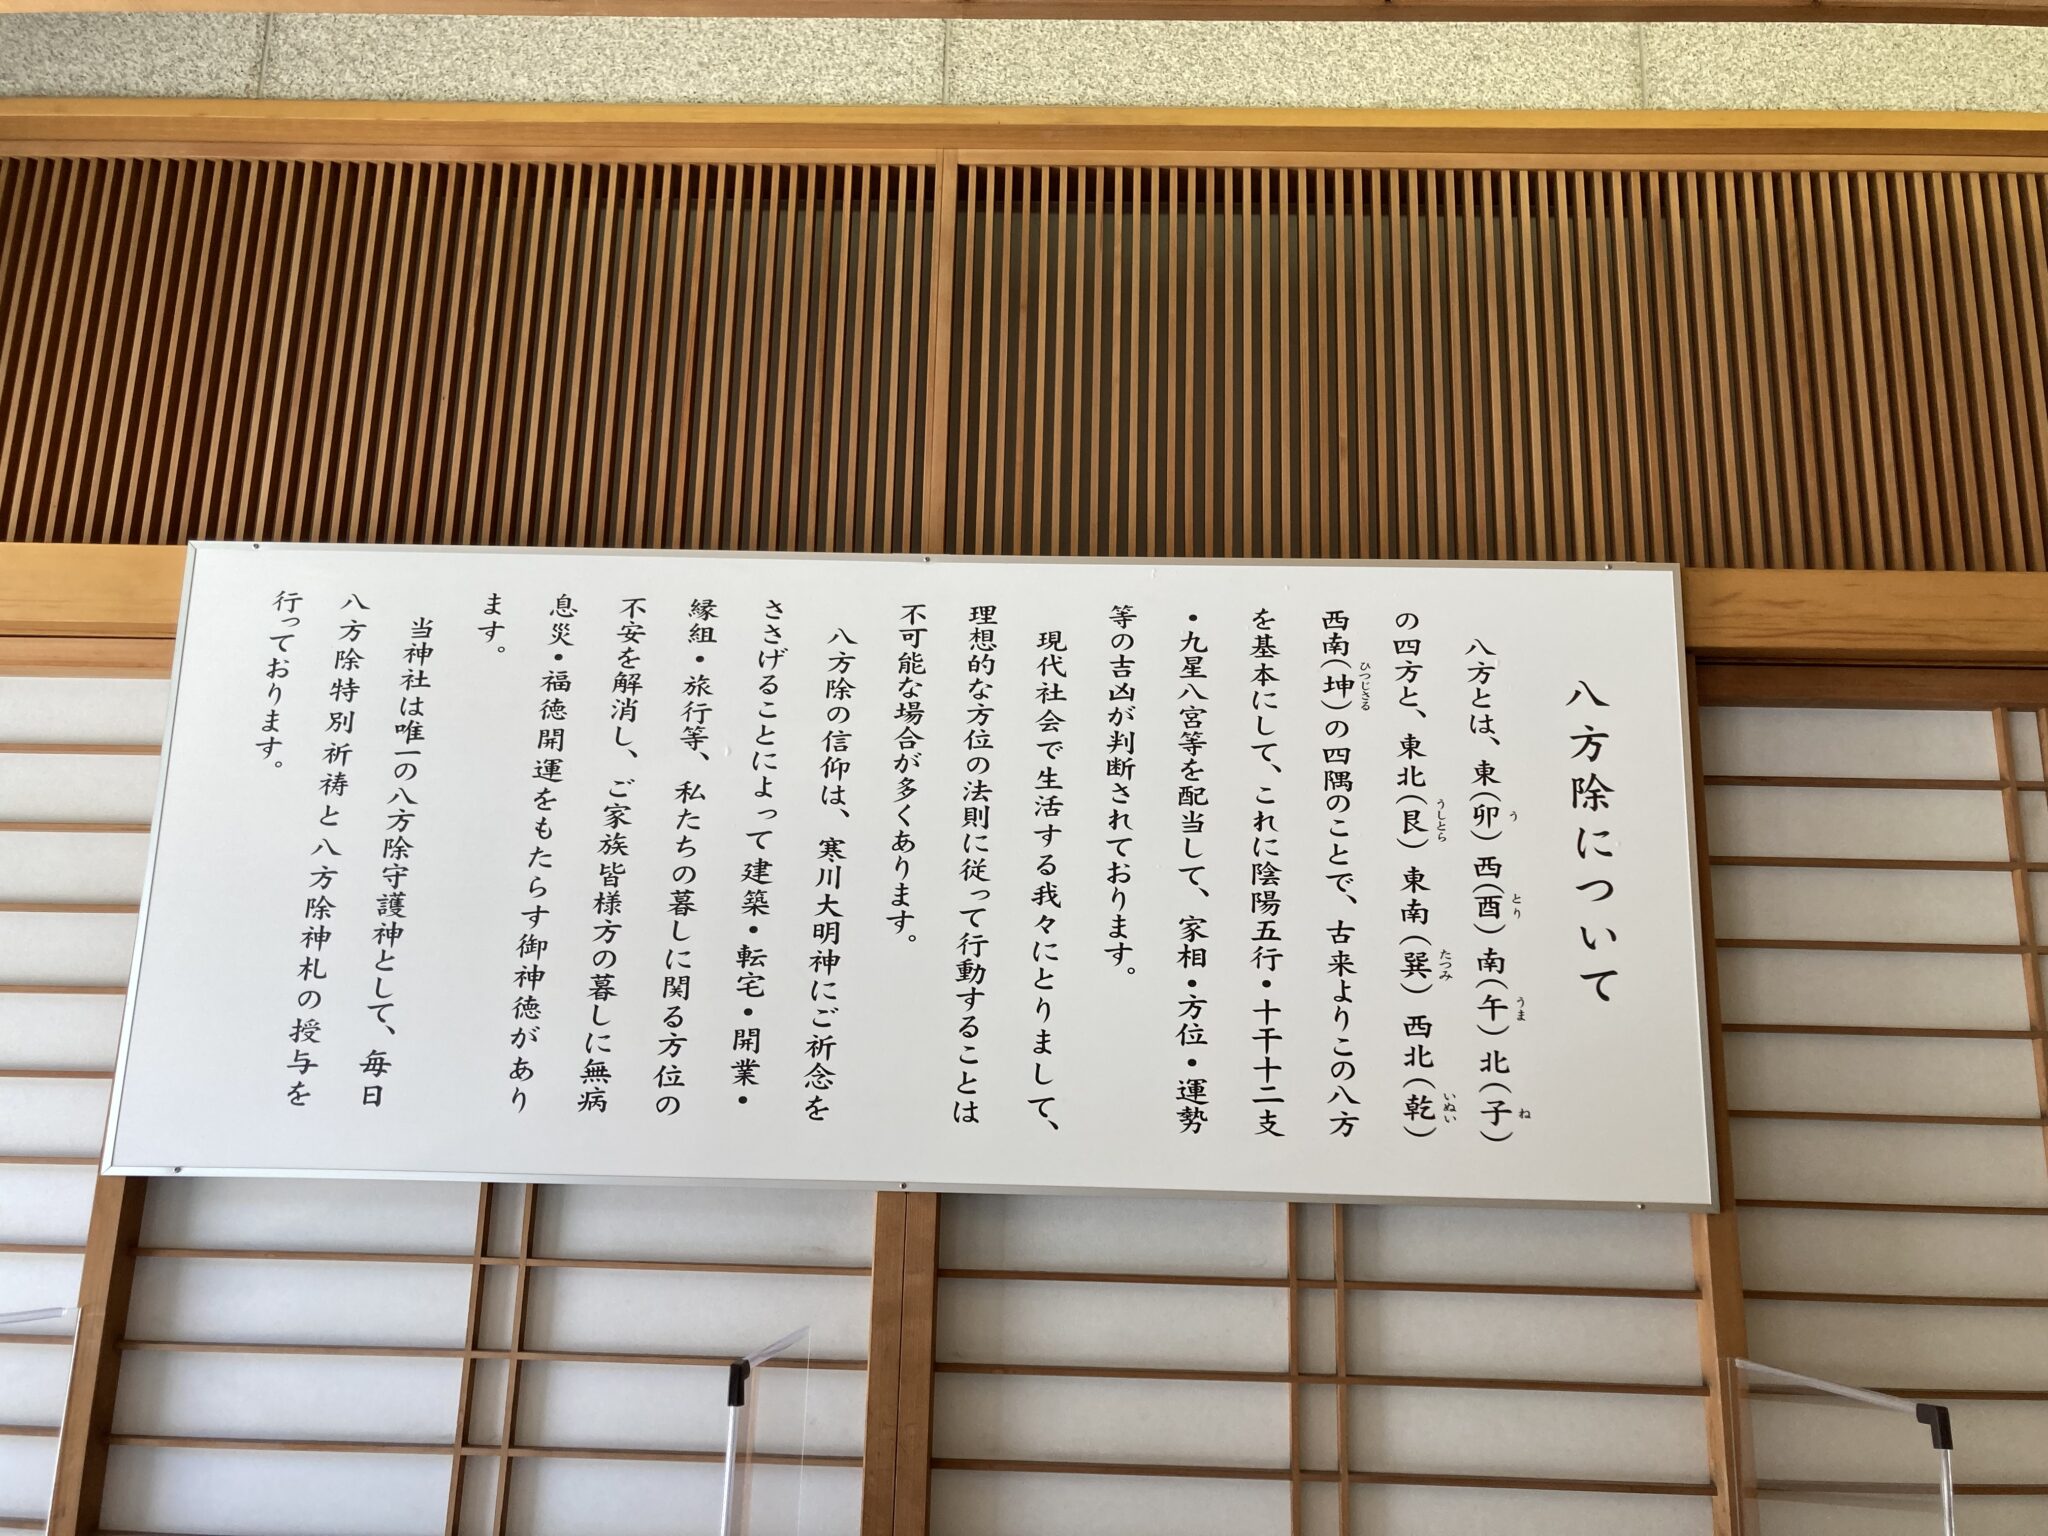 八方除について
八方とは、東(卯)西(酉)南(午)北(子)
う とり うま ね
の四方と、東北(艮)東南(巽)西北(乾)
うしとら たつみ いぬい
西南(坤)の四隅のことで、古来よりこの八方
ひつじさる
を基本にして、これに陰陽五行・十干十二支
・九星八宮等を配当して、家相・方位・運勢
等の吉凶が判断されております。
現代社会で生活する我々にとりまして、
理想的な方位の法則に従って行動することは
不可能な場合が多くあります。
八方除の信仰は、寒川大明神にご祈念を
ささげることによって建築・転宅・開業・
縁組・旅行等、私たちの暮しに関る方位の
不安を解消し、ご家族皆様方の暮しに無病
息災・福徳開運をもたらす御神徳があり
ます。
当神社は唯一の八方除守護神として、毎日
八方除特別祈祷と八方除神札の授与を
行っております。